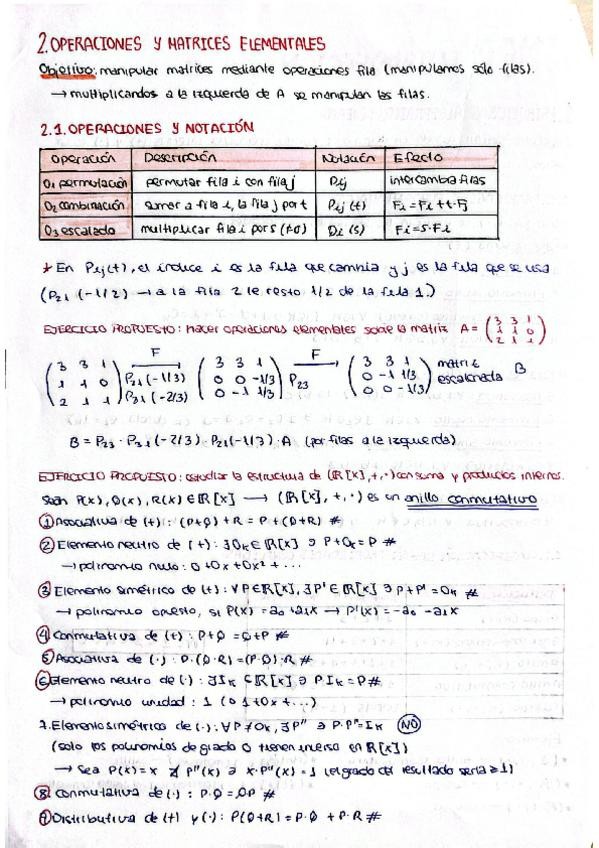 2. OPERACIONES Y MATRICES ELEMENTALES
Objetivo: manipular matrices mediante operaciones fila (manipulamos sólo filas).
→ multiplicandos a la izquierda de A se manipulan las filas.
2.1. OPERACIONES Y NOTACIÓN
Operación Descripción Notación Efecto
O1 permutación permutar fila i con fila j Pij intercambia filas
O2 combinación sumar a fila i, la fila j por t Pij (t) Fi = Fi + t·Fj
O3 escalado multiplicar fila i por s (≠0) Di (s) Fi = s·Fi
* En Pij(t), el índice i es la fila que cambia y j es la fila que se usa
(P21 (-1/2) → a la fila 2 le resto 1/2 de la fila 1.)
EJERCICIO PROPUESTO: Hacer operaciones elementales sobre la matriz A = (3 3 1 / 1 1 0 / 2 1 1)
(3 3 1 / 1 1 0 / 2 1 1) F → P21 (-1/3) P31 (-2/3) (3 3 1 / 0 0 -1/3 / 0 -1 1/3) F → P23 (3 3 1 / 0 -1 1/3 / 0 0 -1/3) matriz escalonada B
B = P23 · P31 (-2/3) · P21 (-1/3) · A (por filas a la izquierda)
EJERCICIO PROPUESTO: estudiar la estructura de (ℝ[x], +, ·) con suma y productos internos.
Sean P(x), Q(x), R(x) ∈ ℝ[x] → (ℝ[x], +, ·) es un anillo conmutativo
① Asociativa de (+): (P+Q) + R = P + (Q+R) #
② Elemento neutro de (+): ∃ OK ∈ ℝ[x] ∋ P + OK = P #
→ polinomio nulo: 0 + 0x + 0x² + ...
③ Elemento simétrico de (+): ∀P ∈ ℝ[x], ∃P' ∈ ℝ[x] ∋ P + P' = OK #
→ polinomio opuesto, si P(x) = a0 + a1x → P'(x) = -a0 - a1x
④ Conmutativa de (+): P+Q = Q+P #
⑤ Asociativa de (·): P·(Q·R) = (P·Q)·R #
⑥ Elemento neutro de (·): ∃ IK ∈ ℝ[x] ∋ P·IK = P #
→ polinomio unidad: 1 (0 1 + 0x + ...)
7. Elemento simétrico de (·): ∀P ≠ OK, ∃P'' ∋ P·P'' = IK NO
(solo los polinomios de grado 0 tienen inverso en ℝ[x])
→ Sea P(x) = x ∄ P''(x) ∋ x·P''(x) = 1 (el grado del resultado sería ≥ 1)
⑧ Conmutativa de (·): P·Q = QP #
⑨ Distributiva de (+) y (·): P(Q+R) = P·Q + P·R #